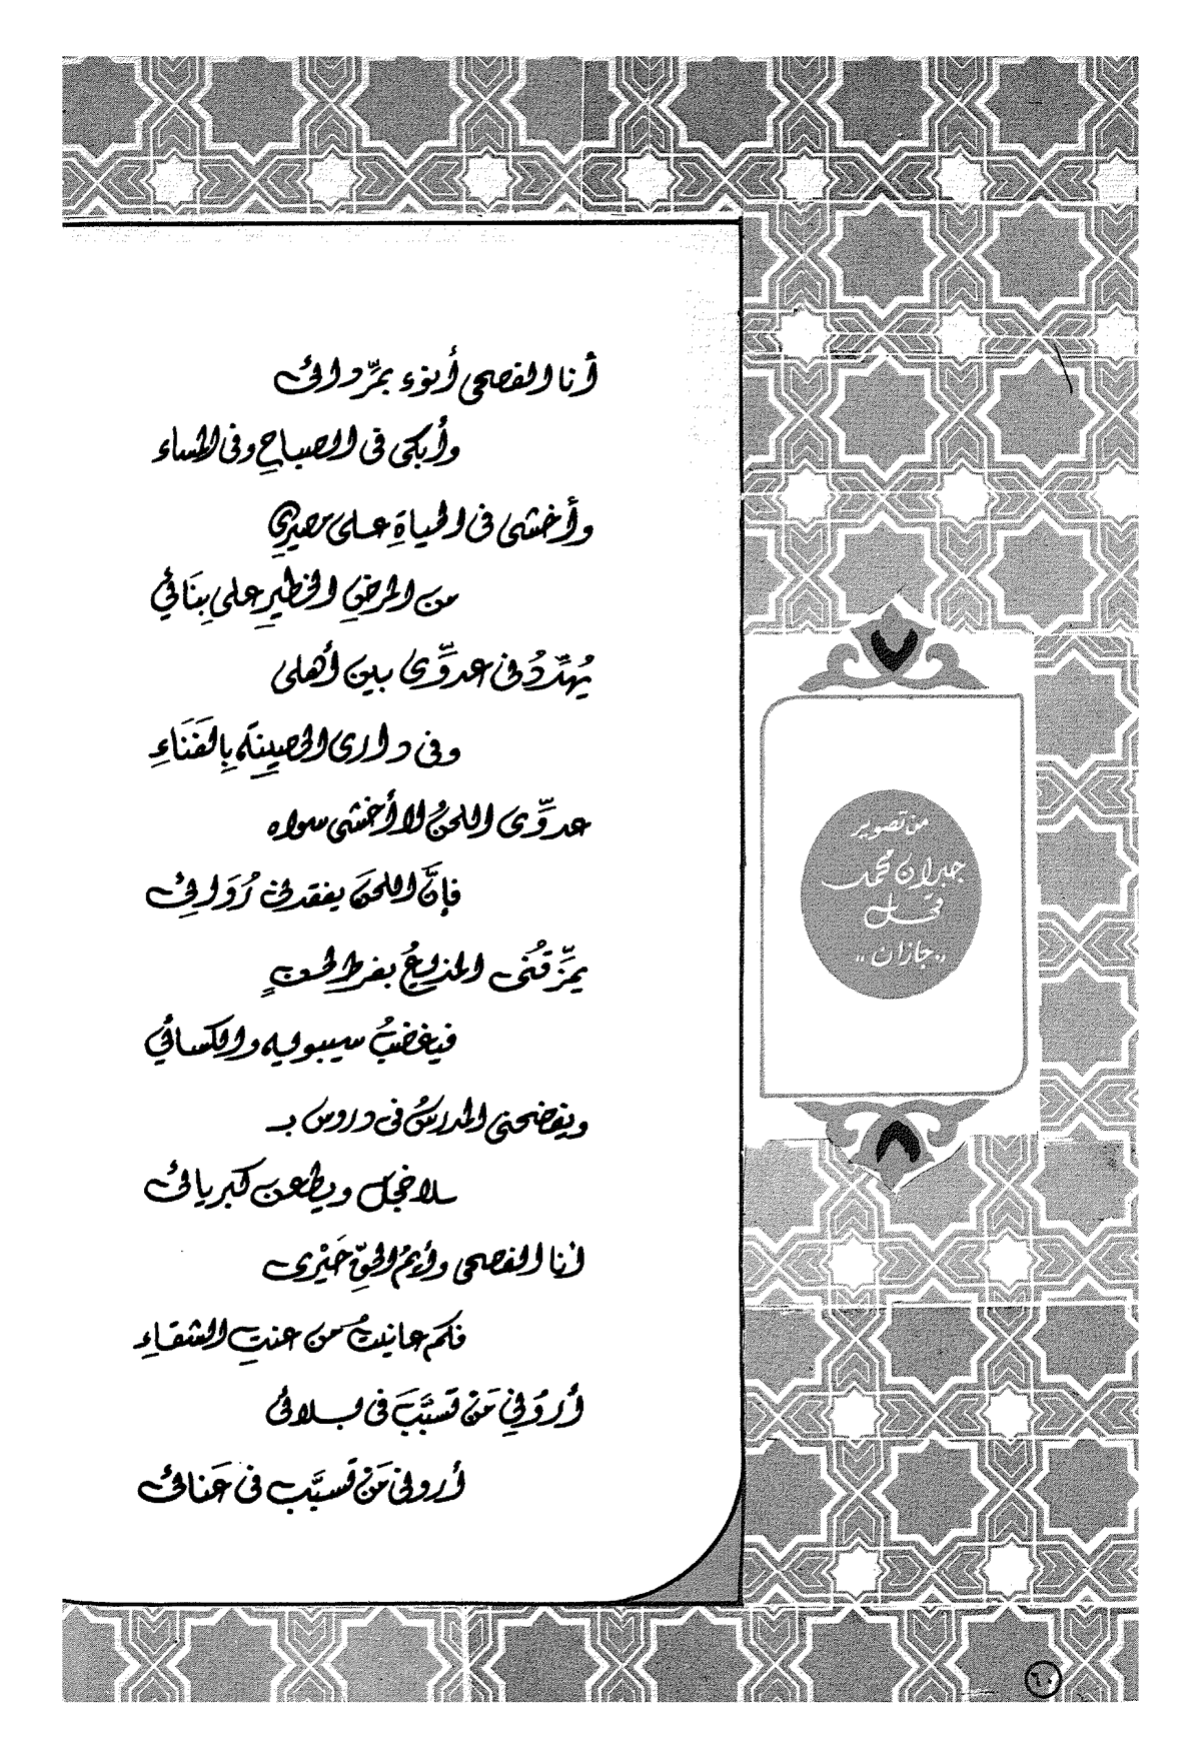 أنا الفصحى أنوء بمرّ دائى
وأبكى فى الصباحِ وفى المساء
وأخشى فى الحياةِ على مصيرِي
من المرضِ الخطيرِ على بِنَائي
يُهدِّدُنى عدوِّى بين أهلى
وفى دارى الحصينةِ بِالفَنَاءِ
عدوِّى اللحنُ لا أخشى سواه
فإنَّ اللحنَ يفقدنى رُوَائِى
يمزِّقُنى المذيعُ بفرط لحنٍ
فيغضبُ سيبويه والكسائي
ويفضحنى المدرسُ فى دروس بـ
ـلا خجل ويطعن كبريائى
أنا الفصحى وأيمُ الحقِّ حَيْرى
فكم عانيتُ من عنتِ الشقاءِ
أرُونِي مَنْ تَسبَّبَ فى بلائى
أرونى مَنْ تَسبَّب فى عَنائى
من تصوير
جبران محمد
قحل
،، جازان ،،
٦٠